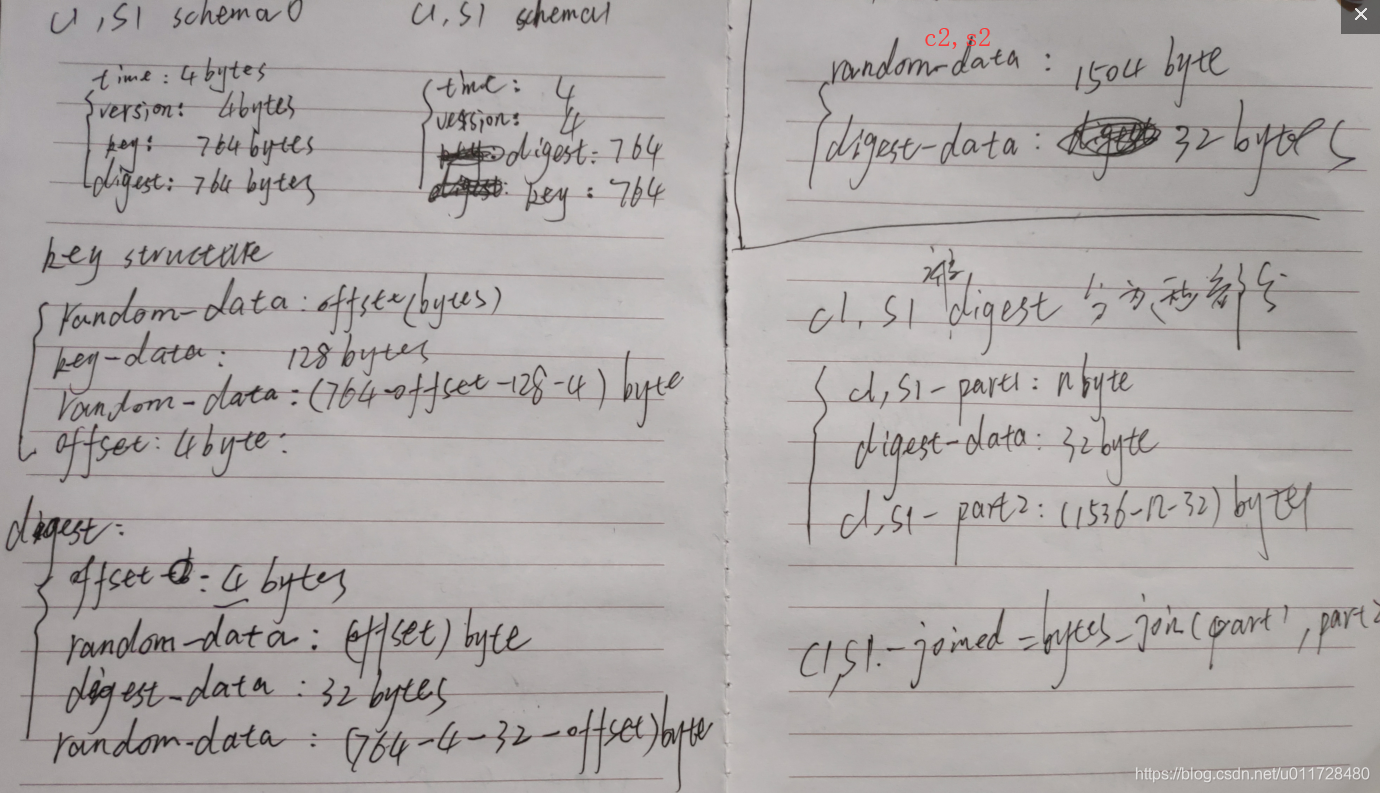 C1,S1 schema0
time: 4bytes
version: 4bytes
key: 764bytes
digest: 764 bytes
C1,S1 schema1
time: 4
version: 4
digest: 764
key: 764
key structure
random-data: offset(bytes)
key-data: 128bytes
random-data: (764-offset-128-4) byte
offset: 4byte:
digest:
offset: 4 bytes
random-data: (offset) byte
digest-data: 32 bytes
random-data: (764-4-32-offset)byte
c2,s2
random-data: 1504 byte
digest-data: 32 bytes
c1,s1 digest 分为
c1,s1-part1: n byte
digest-data: 32byte
c1,s1-part2: (1536-n-32) bytes
C1,S1.-joined=bytes_join(part1,part2
https://blog.csdn.net/u011728480